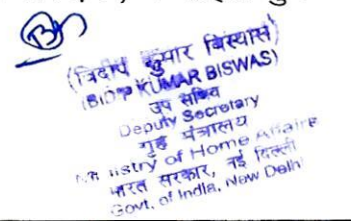 (त्रिदीप कुमार बिस्वास)
(BIDIP KUMAR BISWAS)
उप सचिव
Deputy Secretary
गृह मंत्रालय
Ministry of Home Affairs
भारत सरकार, नई दिल्ली
Govt. of India, New Delhi